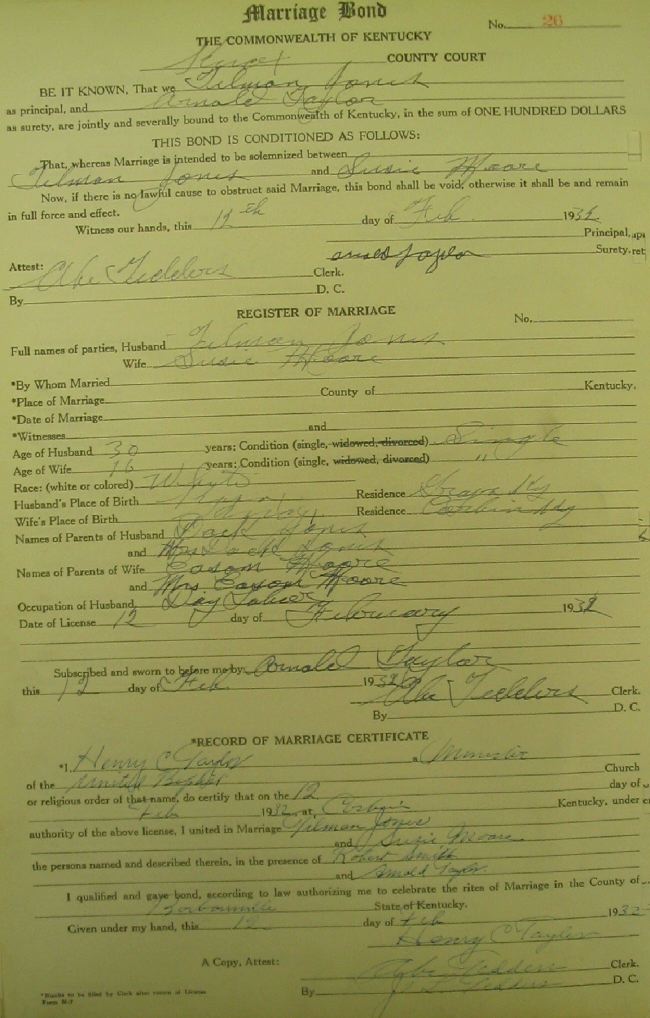 Marriage Bond
No. 26
THE COMMONWEALTH OF KENTUCKY
Knox COUNTY COURT
BE IT KNOWN, That we Tilman Jones
as principal, and Arnold Taylor
as surety, are jointly and severally bound to the Commonwealth of Kentucky, in the sum of ONE HUNDRED DOLLARS
THIS BOND IS CONDITIONED AS FOLLOWS:
That, whereas Marriage is intended to be solemnized between
Tilman Jones and Susie Moore
Now, if there is no lawful cause to obstruct said Marriage, this bond shall be void, otherwise it shall be and remain
in full force and effect.
Witness our hands, this 12th day of Feb 1932
Principal,
Arnold Taylor Surety.
Attest:
Abe Fedders Clerk.
By D. C.
REGISTER OF MARRIAGE
No.
Full names of parties, Husband Tilman Jones
Wife Susie Moore
*By Whom Married
*Place of Marriage County of Kentucky.
*Date of Marriage
*Witnesses and
Age of Husband 30 years; Condition (single, widowed, divorced) Single
Age of Wife 16 years; Condition (single, widowed, divorced) "
Race: (white or colored) White
Husband's Place of Birth Residence Ky
Wife's Place of Birth Residence Corbin Ky
Names of Parents of Husband Jones
and Mrs Jones
Names of Parents of Wife Eason Moore
and Mrs Eason Moore
Occupation of Husband Day Labor
Date of License 12 day of February 1932
Subscribed and sworn to before me by Arnold Taylor
this 12 day of Feb 1932
Abe Fedders Clerk.
By D. C.
*RECORD OF MARRIAGE CERTIFICATE
*I, Henry C Taylor a Minister
of the United Church
or religious order of that name, do certify that on the 12 day of
Feb 1932, at Corbin Kentucky, under
authority of the above license, I united in Marriage Tilman Jones
and Suzie Moore
the persons named and described therein, in the presence of Robert Smith
and Arnold Taylor
I qualified and gave bond, according to law authorizing me to celebrate the rites of Marriage in the County of
Barbourville State of Kentucky.
Given under my hand, this 12 day of Feb 1932
Henry C Taylor
A Copy, Attest:
Abe Fedders Clerk.
By Fedders D. C.
*Blanks to be filled by Clerk after return of License
Form M-7